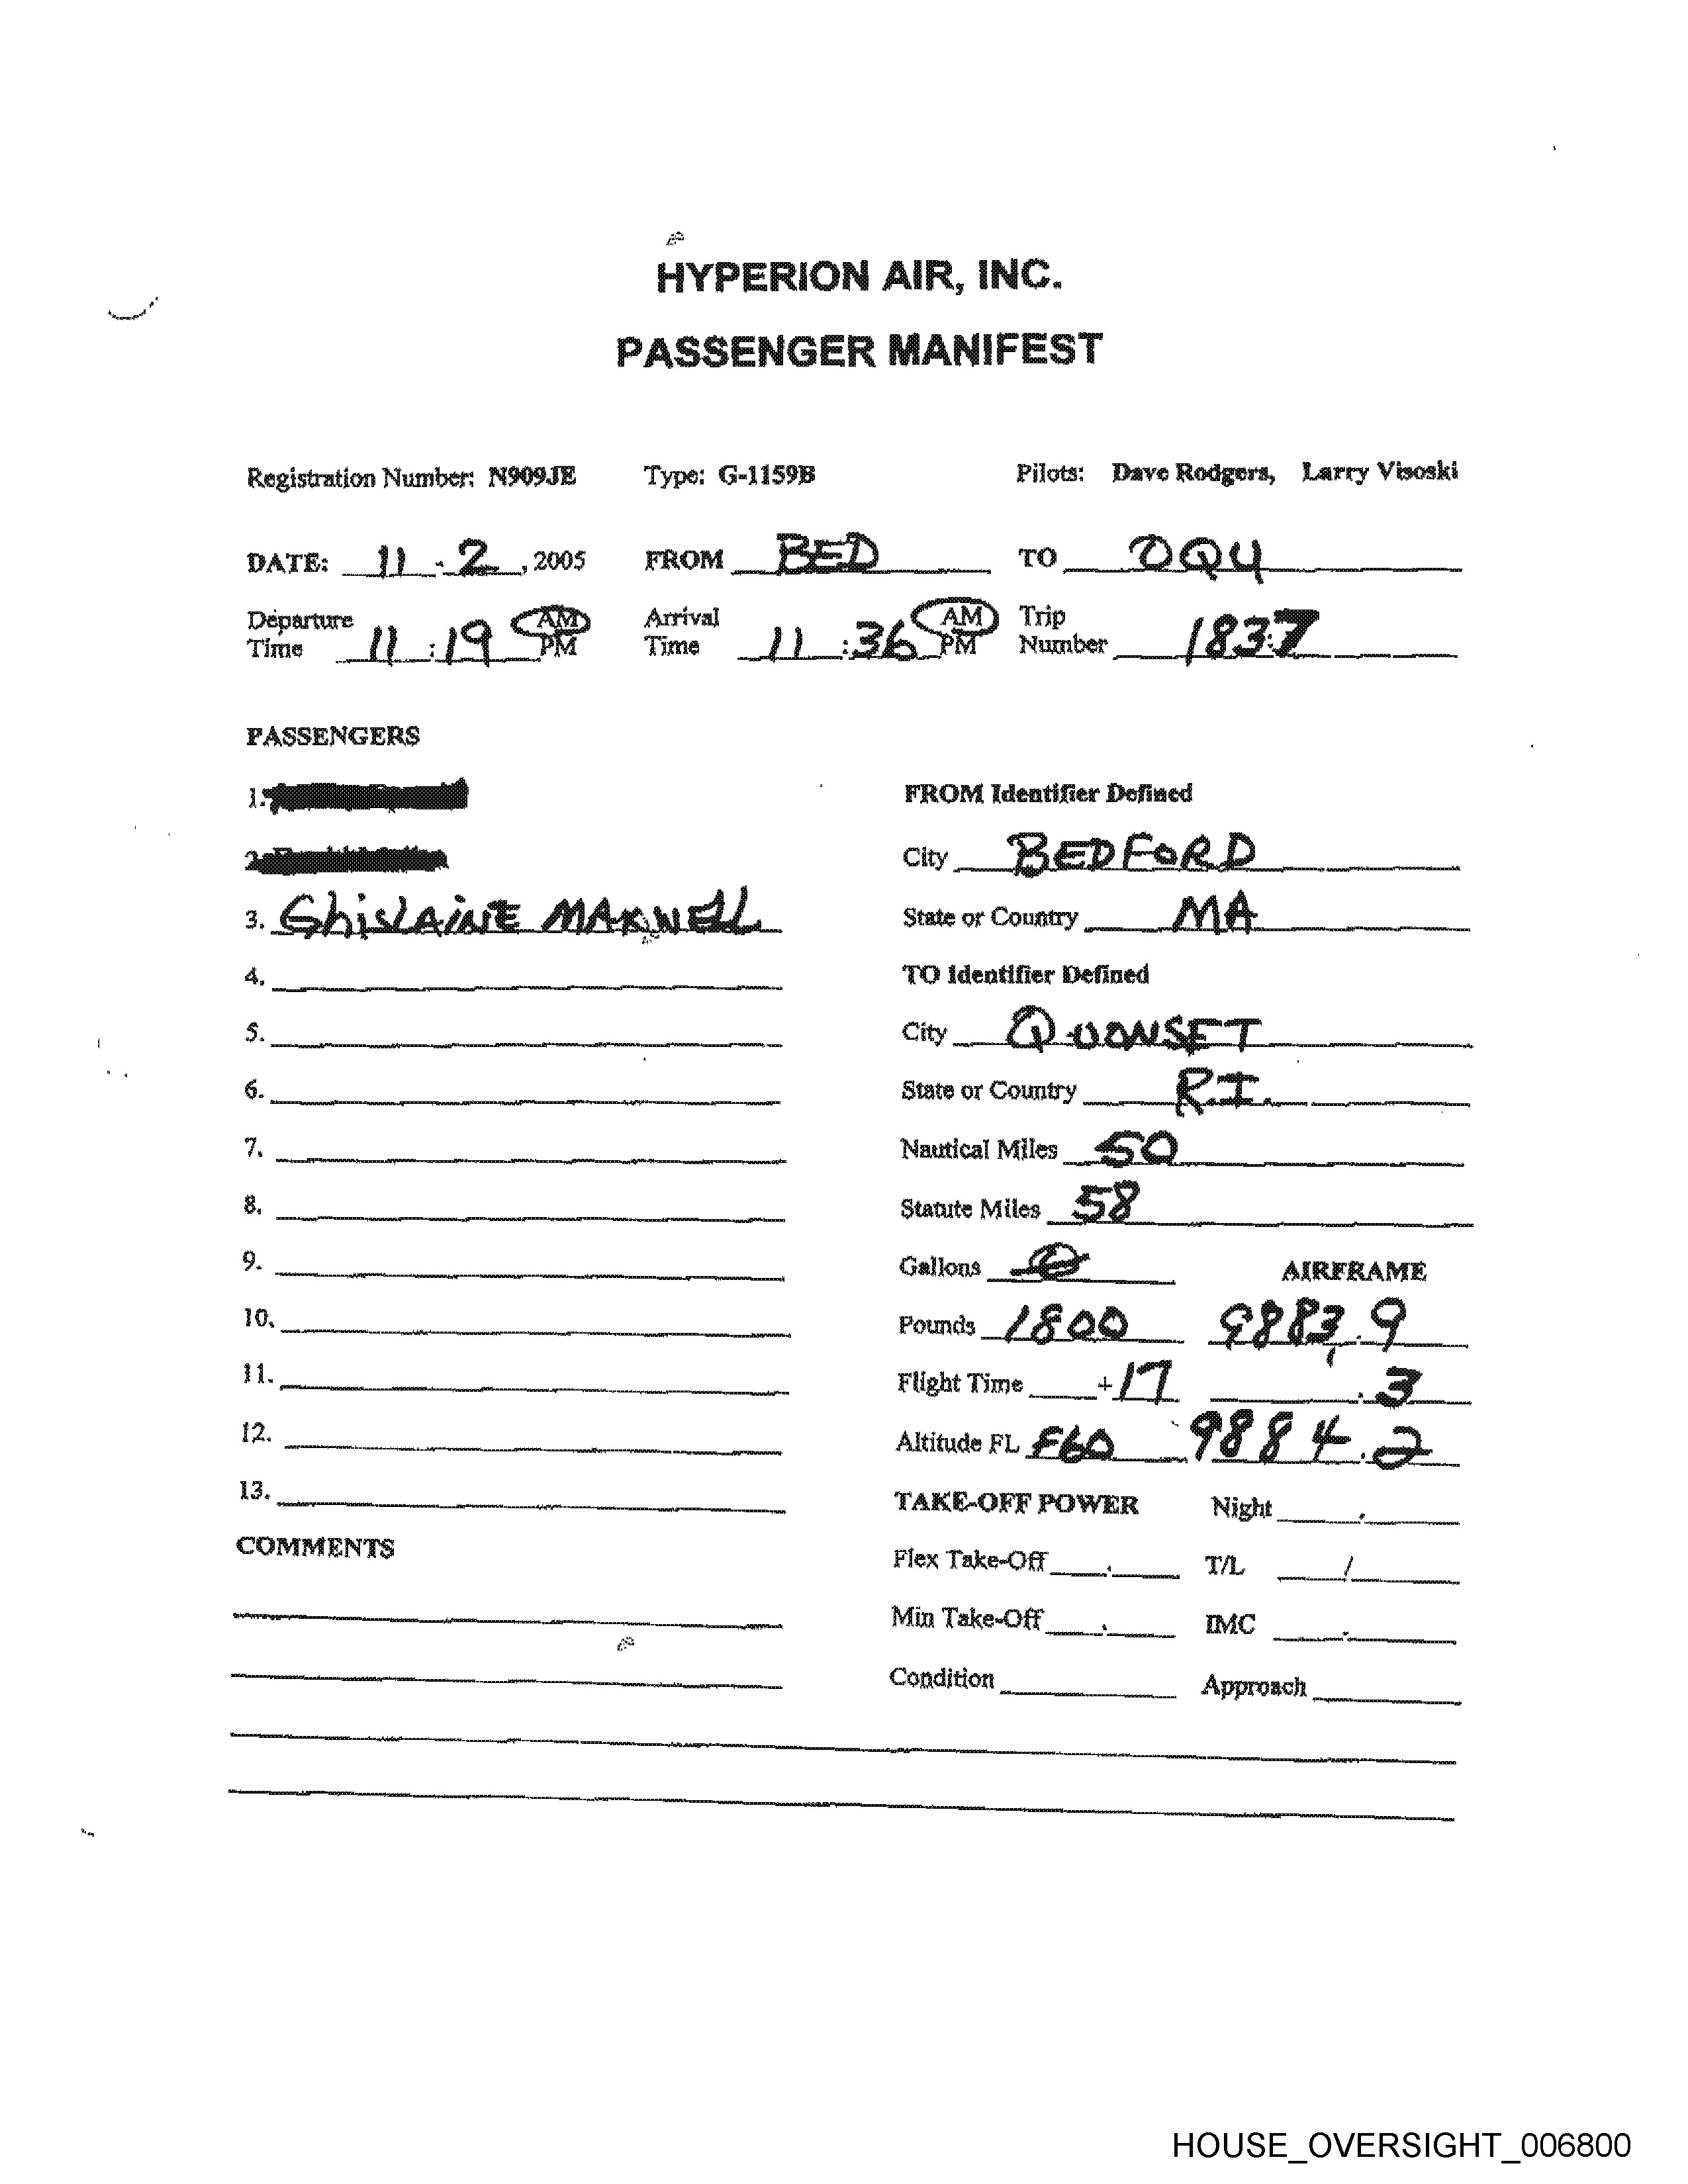 HYPERION AIR, INC.
PASSENGER MANIFEST
Registration Number: N909JE Type: G-1159B Pilots: Dave Rodgers, Larry Visoski
DATE: 11 - 2, 2005 FROM BED TO OQU
Departure Time 11:19 AM PM Arrival Time 11:36 AM PM Trip Number 1837
PASSENGERS
1.
2.
3. GhisLAiNE MAXWELL
4.
5.
6.
7.
8.
9.
10.
11.
12.
13.
COMMENTS
FROM Identifier Defined
City BEDFORD
State or Country MA
TO Identifier Defined
City QUONSET
State or Country R.I.
Nautical Miles 50
Statute Miles 58
Gallons AIRFRAME
Pounds 1800 9883.9
Flight Time + 17 .3
Altitude FL F60 9884.2
TAKE-OFF POWER Night .
Flex Take-Off . T/L /
Min Take-Off . IMC .
Condition Approach
HOUSE_OVERSIGHT_006800